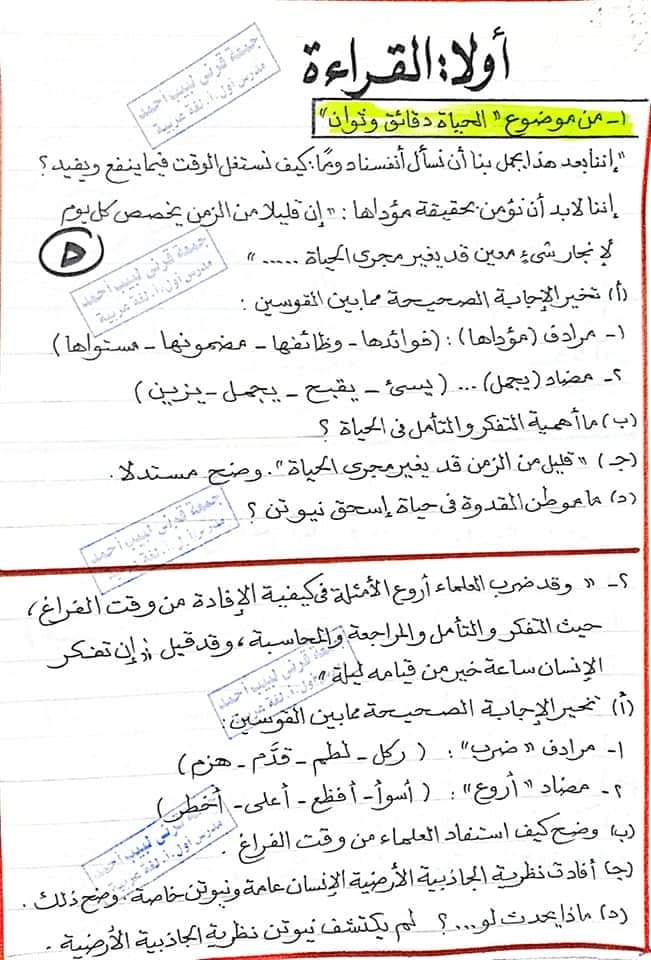 أولا: القراءة
١- من موضوع "الحياة دقائق وثوان"
"إننا بعد هذا يجمل بنا أن نسأل أنفسنا دومًا: كيف نستغل الوقت فيما ينفع ويفيد؟
إننا لابد أن نؤمن بحقيقة مؤداها: "إن قليلا من الزمن يخصص كل يوم
لإنجاز شيء معين قد يغير مجرى الحياة ....."
٥
(أ) تخير الإجابة الصحيحة مما بين القوسين:
١- مرادف (مؤداها): (فوائدها - وظائفها - مضمونها - مستواها)
٢- مضاد (يجمل) ... (يسئ - يقبح - يجمل - يزين)
(ب) ما أهمية التفكر والتأمل فى الحياة؟
(جـ) "قليل من الزمن قد يغير مجرى الحياة". وضح مستدلا.
(د) ما موطن القدوة فى حياة إسحق نيوتن؟
٢- "وقد ضرب العلماء أروع الأمثلة فى كيفية الإفادة من وقت الفراغ،
حيث التفكر والتأمل والمراجعة والمحاسبة، وقد قيل: إن تفكر
الإنسان ساعة خير من قيامه ليلة"
(أ) تخير الإجابة الصحيحة مما بين القوسين:
١- مرادف "ضرب": (ركل - لطم - قدَّم - هزم)
٢- مضاد "أروع": (أسوأ - أفظع - أعلى - أخطر)
(ب) وضح كيف استفاد العلماء من وقت الفراغ.
(جـ) أفادت نظرية الجاذبية الأرضية الإنسان عامة ونيوتن خاصة، وضح ذلك.
(د) ماذا يحدث لو...؟ لم يكتشف نيوتن نظرية الجاذبية الأرضية.
جمعة قرنى لبيب أحمد
مدرس أول.أ. لغة عربية
جمعة قرنى لبيب أحمد
مدرس أول.أ. لغة عربية
جمعة قرنى لبيب أحمد
مدرس أول.أ. لغة عربية
جمعة قرنى لبيب أحمد
مدرس أول.أ. لغة عربية
جمعة قرنى لبيب أحمد
مدرس أول.أ. لغة عربية